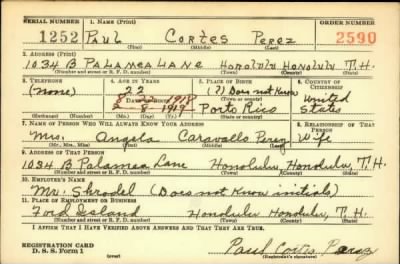 SERIAL NUMBER 1. NAME (Print) ORDER NUMBER
1252 PAUL CORTES PEREZ 2590
(First) (Middle) (Last)
2. ADDRESS (Print)
1034 B PALAMEA LANE HONOLULU HONOLULU T.H.
(Number and street or R. F. D. number) (Town) (County) (State)
3. TELEPHONE 4. AGE IN YEARS 5. PLACE OF BIRTH 6. COUNTRY OF CITIZENSHIP
(none) 22 (?) Does not Know United
DATE OF BIRTH (Town or county)
8 8 1918 Porto Rico States
(Exchange) (Number) (Mo.) (Day) (Yr.) (State or country)
7. NAME OF PERSON WHO WILL ALWAYS KNOW YOUR ADDRESS 8. RELATIONSHIP OF THAT PERSON
Mrs. Angela Caravallo Perez Wife
(Mr., Mrs., Miss) (First) (Middle) (Last)
9. ADDRESS OF THAT PERSON
1034 B Palamea Lane Honolulu, Honolulu, T.H.
(Number and street or R. F. D. number) (Town) (County) (State)
10. EMPLOYER'S NAME
Mr. Shrodel (Does not Know initials)
11. PLACE OF EMPLOYMENT OR BUSINESS
Ford Island Honolulu Honolulu, T.H.
(Number and street or R. F. D. number) (Town) (County) (State)
I AFFIRM THAT I HAVE VERIFIED ABOVE ANSWERS AND THAT THEY ARE TRUE.
REGISTRATION CARD
D. S. S. Form 1 Paul Cortes Perez
(Registrant's signature)